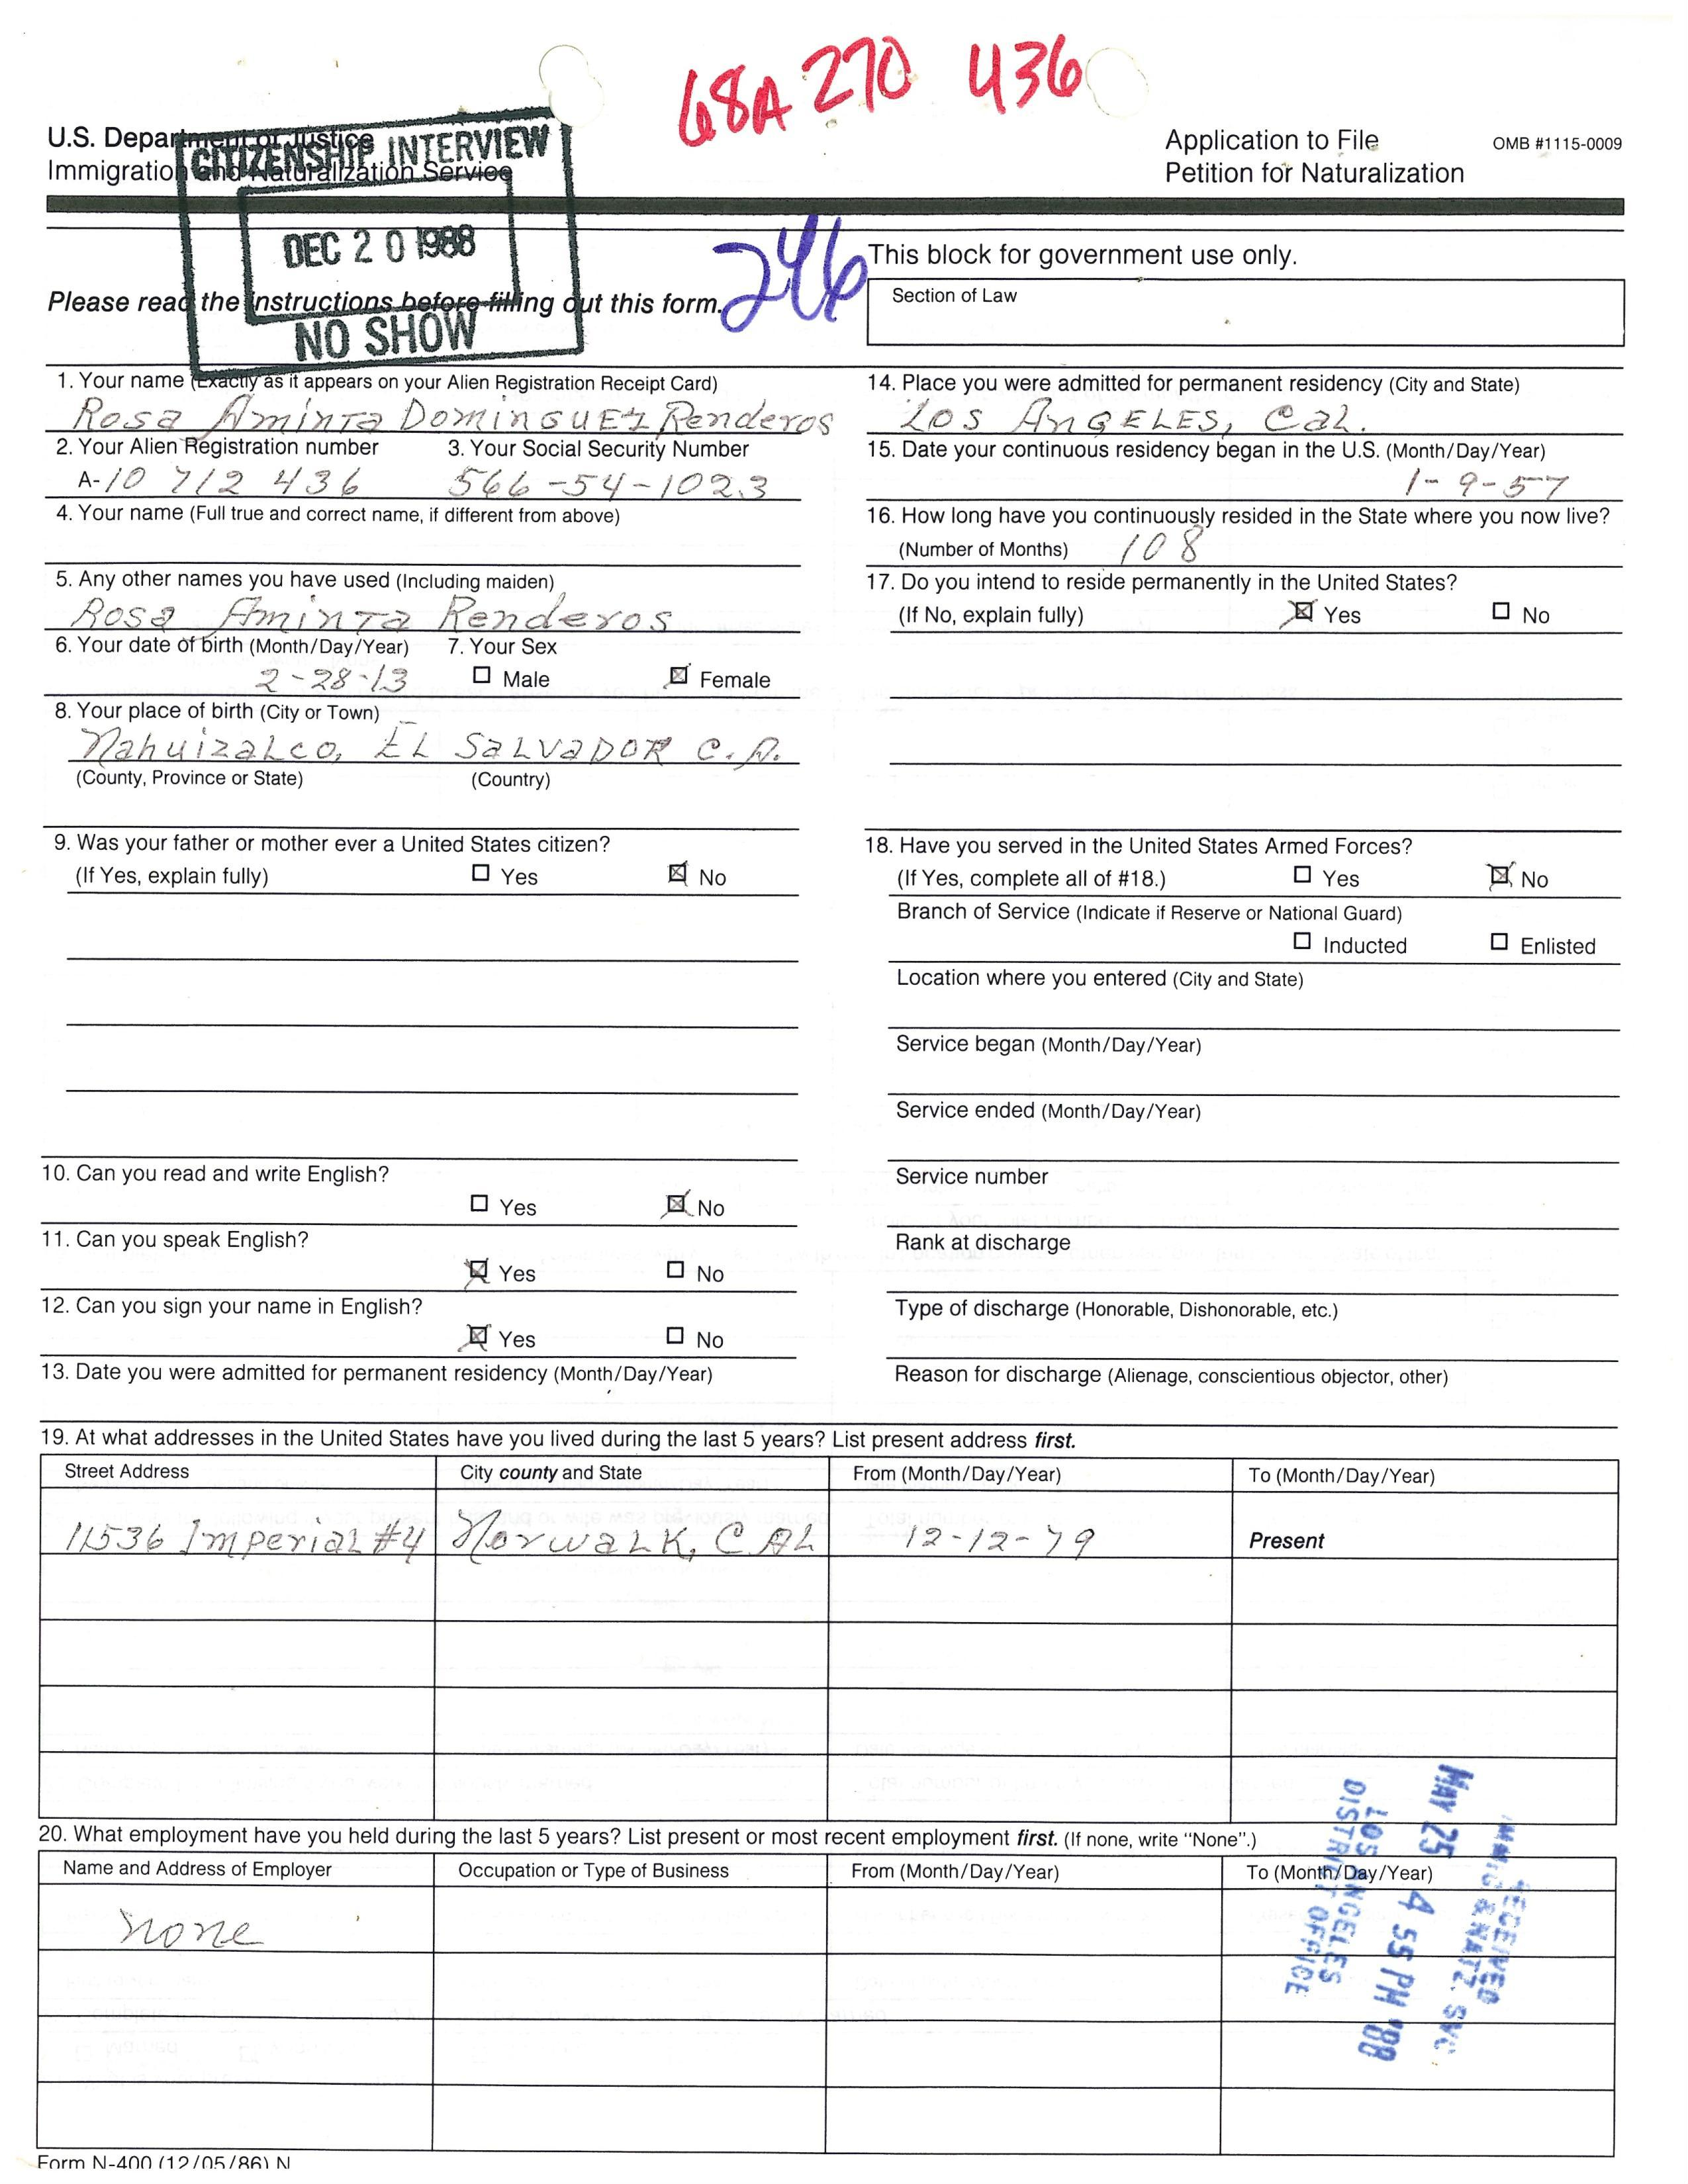 68A 270 436
U.S. Department of Justice
Immigration and Naturalization Service
Application to File
Petition for Naturalization
OMB #1115-0009
CITIZENSHIP INTERVIEW
DEC 20 1988
NO SHOW
Please read the instructions before filling out this form.
246
This block for government use only.
Section of Law
1. Your name (Exactly as it appears on your Alien Registration Receipt Card)
Rosa Aminta Dominguez Renderos
2. Your Alien Registration number 3. Your Social Security Number
A-10 712 436 566-54-1023
4. Your name (Full true and correct name, if different from above)
5. Any other names you have used (Including maiden)
Rosa Aminta Renderos
6. Your date of birth (Month/Day/Year) 7. Your Sex
2-28-13 Male Female
8. Your place of birth (City or Town)
Nahuizalco, EL SALVADOR C.A.
(County, Province or State) (Country)
9. Was your father or mother ever a United States citizen?
(If Yes, explain fully) Yes No
10. Can you read and write English?
Yes No
11. Can you speak English?
Yes No
12. Can you sign your name in English?
Yes No
13. Date you were admitted for permanent residency (Month/Day/Year)
14. Place you were admitted for permanent residency (City and State)
LOS ANGELES, Cal.
15. Date your continuous residency began in the U.S. (Month/Day/Year)
1-9-57
16. How long have you continuously resided in the State where you now live?
(Number of Months) 108
17. Do you intend to reside permanently in the United States?
(If No, explain fully) Yes No
18. Have you served in the United States Armed Forces?
(If Yes, complete all of #18.) Yes No
Branch of Service (Indicate if Reserve or National Guard)
Inducted Enlisted
Location where you entered (City and State)
Service began (Month/Day/Year)
Service ended (Month/Day/Year)
Service number
Rank at discharge
Type of discharge (Honorable, Dishonorable, etc.)
Reason for discharge (Alienage, conscientious objector, other)
19. At what addresses in the United States have you lived during the last 5 years? List present address first.
Street Address City county and State From (Month/Day/Year) To (Month/Day/Year)
11536 Imperial #4 Norwalk, CAL 12-12-79 Present
20. What employment have you held during the last 5 years? List present or most recent employment first. (If none, write "None".)
Name and Address of Employer Occupation or Type of Business From (Month/Day/Year) To (Month/Day/Year)
None
RECEIVED
IMMIG & NATZ. SVC
MAY 25 4 55 PM '88
LOS ANGELES
DISTRICT OFFICE
Form N-400 (12/05/86) N